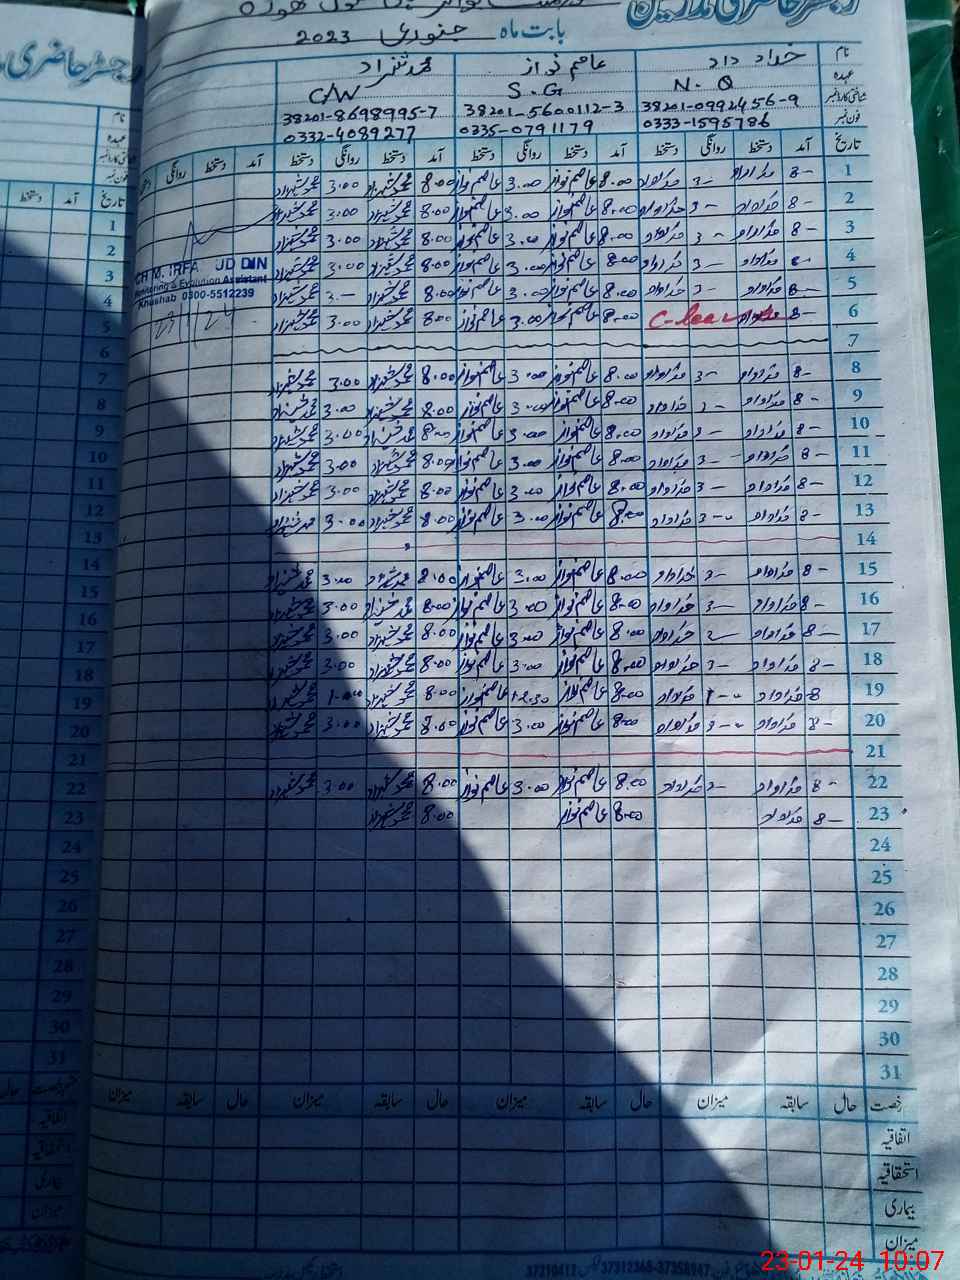 رجسٹر حاضری مدرسین
بابت ماہ جنوری 2023
نام خداد داد عاصم نواز محمد شہزاد
عہدہ N.Q S.G C/W
شناختی کارڈ نمبر 38201-0992456-9 38201-5600112-3 38201-8698995-7
فون نمبر 0333-1595786 0335-0791179 0332-4089277
تاریخ آمد دستخط روانگی دستخط آمد دستخط روانگی دستخط آمد دستخط روانگی دستخط آمد دستخط روانگی
1 8- خداداد 3- خداداد 8.00 عاصم نواز 3.00 عاصم نواز 8.00 محمد شہزاد 3.00 محمد شہزاد
2 8- خداداد 3- خداداد 8.00 عاصم نواز 3.00 عاصم نواز 8.00 محمد شہزاد 3.00 محمد شہزاد
3 8- خداداد 3- خداداد 8.00 عاصم نواز 3.00 عاصم نواز 8.00 محمد شہزاد 3.00 محمد شہزاد
4 خداداد 3- خداداد 8.00 عاصم نواز 3.00 عاصم نواز 8.00 محمد شہزاد 3.00 محمد شہزاد
5 8- خداداد 3- خداداد 8.00 عاصم نواز 3.00 عاصم نواز 8.00 محمد شہزاد 3.- محمد شہزاد
6 8- C-leave 8.00 عاصم نواز 3.00 عاصم نواز 8.00 محمد شہزاد 3.00 محمد شہزاد
7
8 8- خداداد 3- خداداد 8.00 عاصم نواز 3.00 عاصم نواز 8.00 محمد شہزاد 3.00 محمد شہزاد
9 8- خداداد خداداد 8.00 عاصم نواز 3.00 عاصم نواز 8.00 محمد شہزاد 3.00 محمد شہزاد
10 8- خداداد 3- خداداد 8.00 عاصم نواز 3.00 عاصم نواز 8.00 محمد شہزاد 3.00 محمد شہزاد
11 8- خداداد 3- خداداد 8.00 عاصم نواز 3.00 عاصم نواز 8.00 محمد شہزاد 3.00 محمد شہزاد
12 8- خداداد 3- خداداد 8.00 عاصم نواز 3.00 عاصم نواز 8.00 محمد شہزاد 3.00 محمد شہزاد
13 8- خداداد 3-- خداداد 8.00 عاصم نواز 3.00 عاصم نواز 8.00 محمد شہزاد 3.00 محمد شہزاد
14
15 8- خداداد 3- خداداد 8.00 عاصم نواز 3.00 عاصم نواز 8.00 محمد شہزاد 3.00 محمد شہزاد
16 8- خداداد 3- خداداد 8.00 عاصم نواز 3.00 عاصم نواز 8.00 محمد شہزاد 3.00 محمد شہزاد
17 8- خداداد خداداد 8.00 عاصم نواز 3.00 عاصم نواز 8.00 محمد شہزاد 3.00 محمد شہزاد
18 8- خداداد 3- خداداد 8.00 عاصم نواز 3.00 عاصم نواز 8.00 محمد شہزاد 3.00 محمد شہزاد
19 8 خداداد 1-- خداداد 8.00 عاصم نواز 12.30 عاصم نواز 8.00 محمد شہزاد 1.00 محمد شہزاد
20 8- خداداد 3-- خداداد 8.00 عاصم نواز 3.00 عاصم نواز 8.00 محمد شہزاد 3.00 محمد شہزاد
21
22 8- خداداد خداداد 8.00 عاصم نواز 3.00 عاصم نواز 8.00 محمد شہزاد 3.00 محمد شہزاد
23 8- خداداد 8.00 عاصم نواز 8.00 محمد شہزاد
24
25
26
27
28
29
30
31
رخصت حال سابقہ میزان حال سابقہ میزان حال سابقہ میزان حال سابقہ میزان
اتفاقیہ
استحقاقیہ
بیماری
میزان
CH M. IRFA UD DIN
Monitoring & Evolution Assistant
Khushab 0300-5512239
23/1/24
رجسٹر حاضری
نام
عہدہ
شناختی کارڈ نمبر
فون نمبر
تاریخ آمد دستخط
1
2
3
4
5
6
7
8
9
10
11
12
13
14
15
16
17
18
19
20
21
22
23
24
25
26
27
28
29
30
31
رخصت حال
اتفاقیہ
بیماری
میزان
23-01-24 10:07